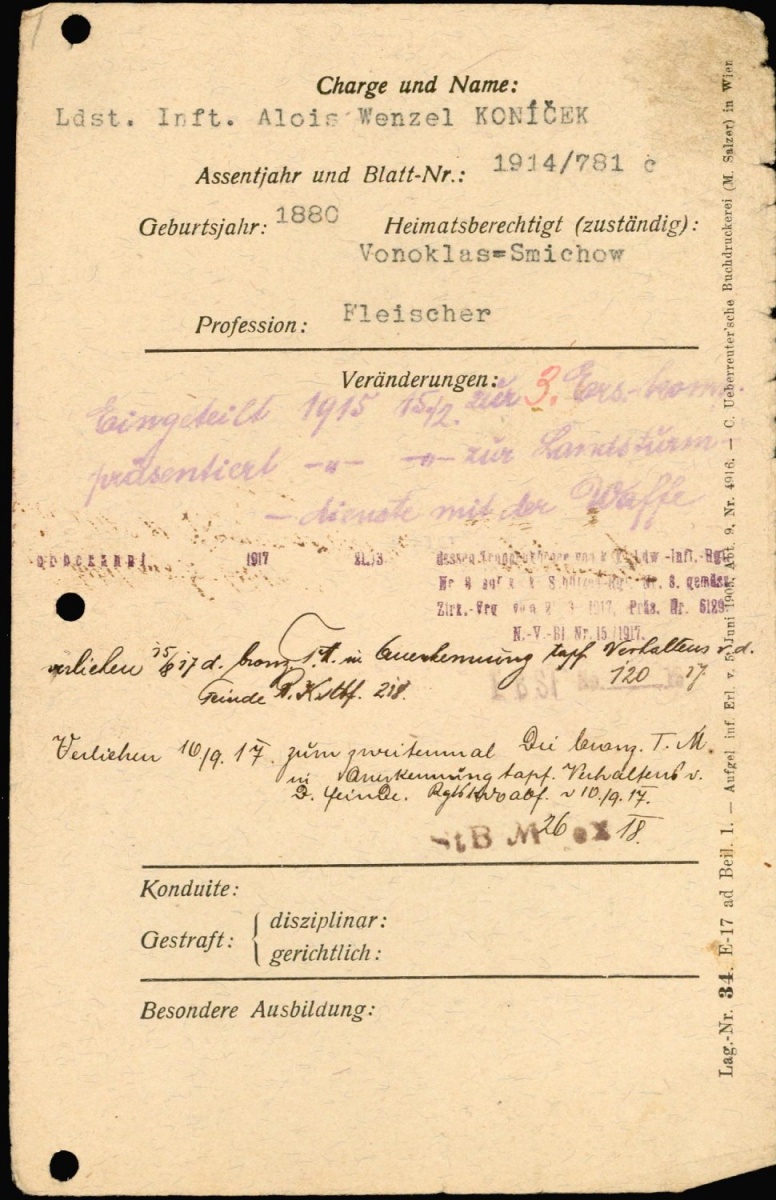 Charge und Name:
Ldst. Inft. Alois Wenzel KONÍČEK
Assentjahr und Blatt-Nr.: 1914/781 č
Geburtsjahr: 1880 Heimatsberechtigt (zuständig):
Vonoklas=Smichow
Profession: Fleischer
Veränderungen:
Eingeteilt 1915 15/2. zur 3. Ers.-komp.
präsentiert -"- -"- zur Landsturm-
- dienste mit der Waffe
1917 21./3. dessen von k. k. Ldw.-Inft.-Rgt.
Nr. 8 auf k. k. Schützen-Rgt. Nr. 8. gemäss
Zirk.-Vrg. 1917, Präs. Nr.
N.-V.-Bl. Nr. 15/1917.
verliehen 17 d. bronz. T.M. in Anerkennung tapf. Verhaltens v. d.
Feinde 120 17
Verliehen 10/9. 17. zum zweitenmal Die bronz. T. M.
in Anerkennung tapf. Verhaltens v.
D. Feinde. v 10./9. 17.
26 18.
Konduite:
Gestraft: disziplinar:
gerichtlich:
Besondere Ausbildung:
Lag.-Nr. 34. E-17 ad Beil. 1. — Aufgel. inf. Erl. v. 5. Juni 1908, Abt. 9, Nr. 4916. — C. Ueberreuter'sche Buchdruckerei (M. Salzer) in Wien